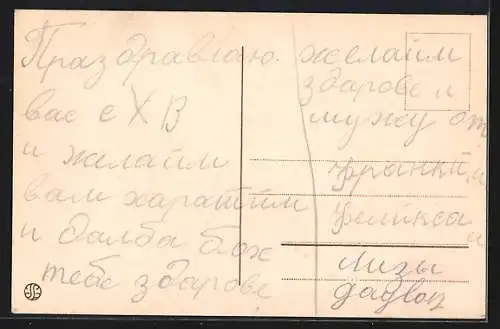 Праздравлаю
вас с ХВ
и желайм
вам харатйм
и далба бож
тебе здаровє
желайм
здаровє и
мужу от
Франки, и
Феликса и
лизы